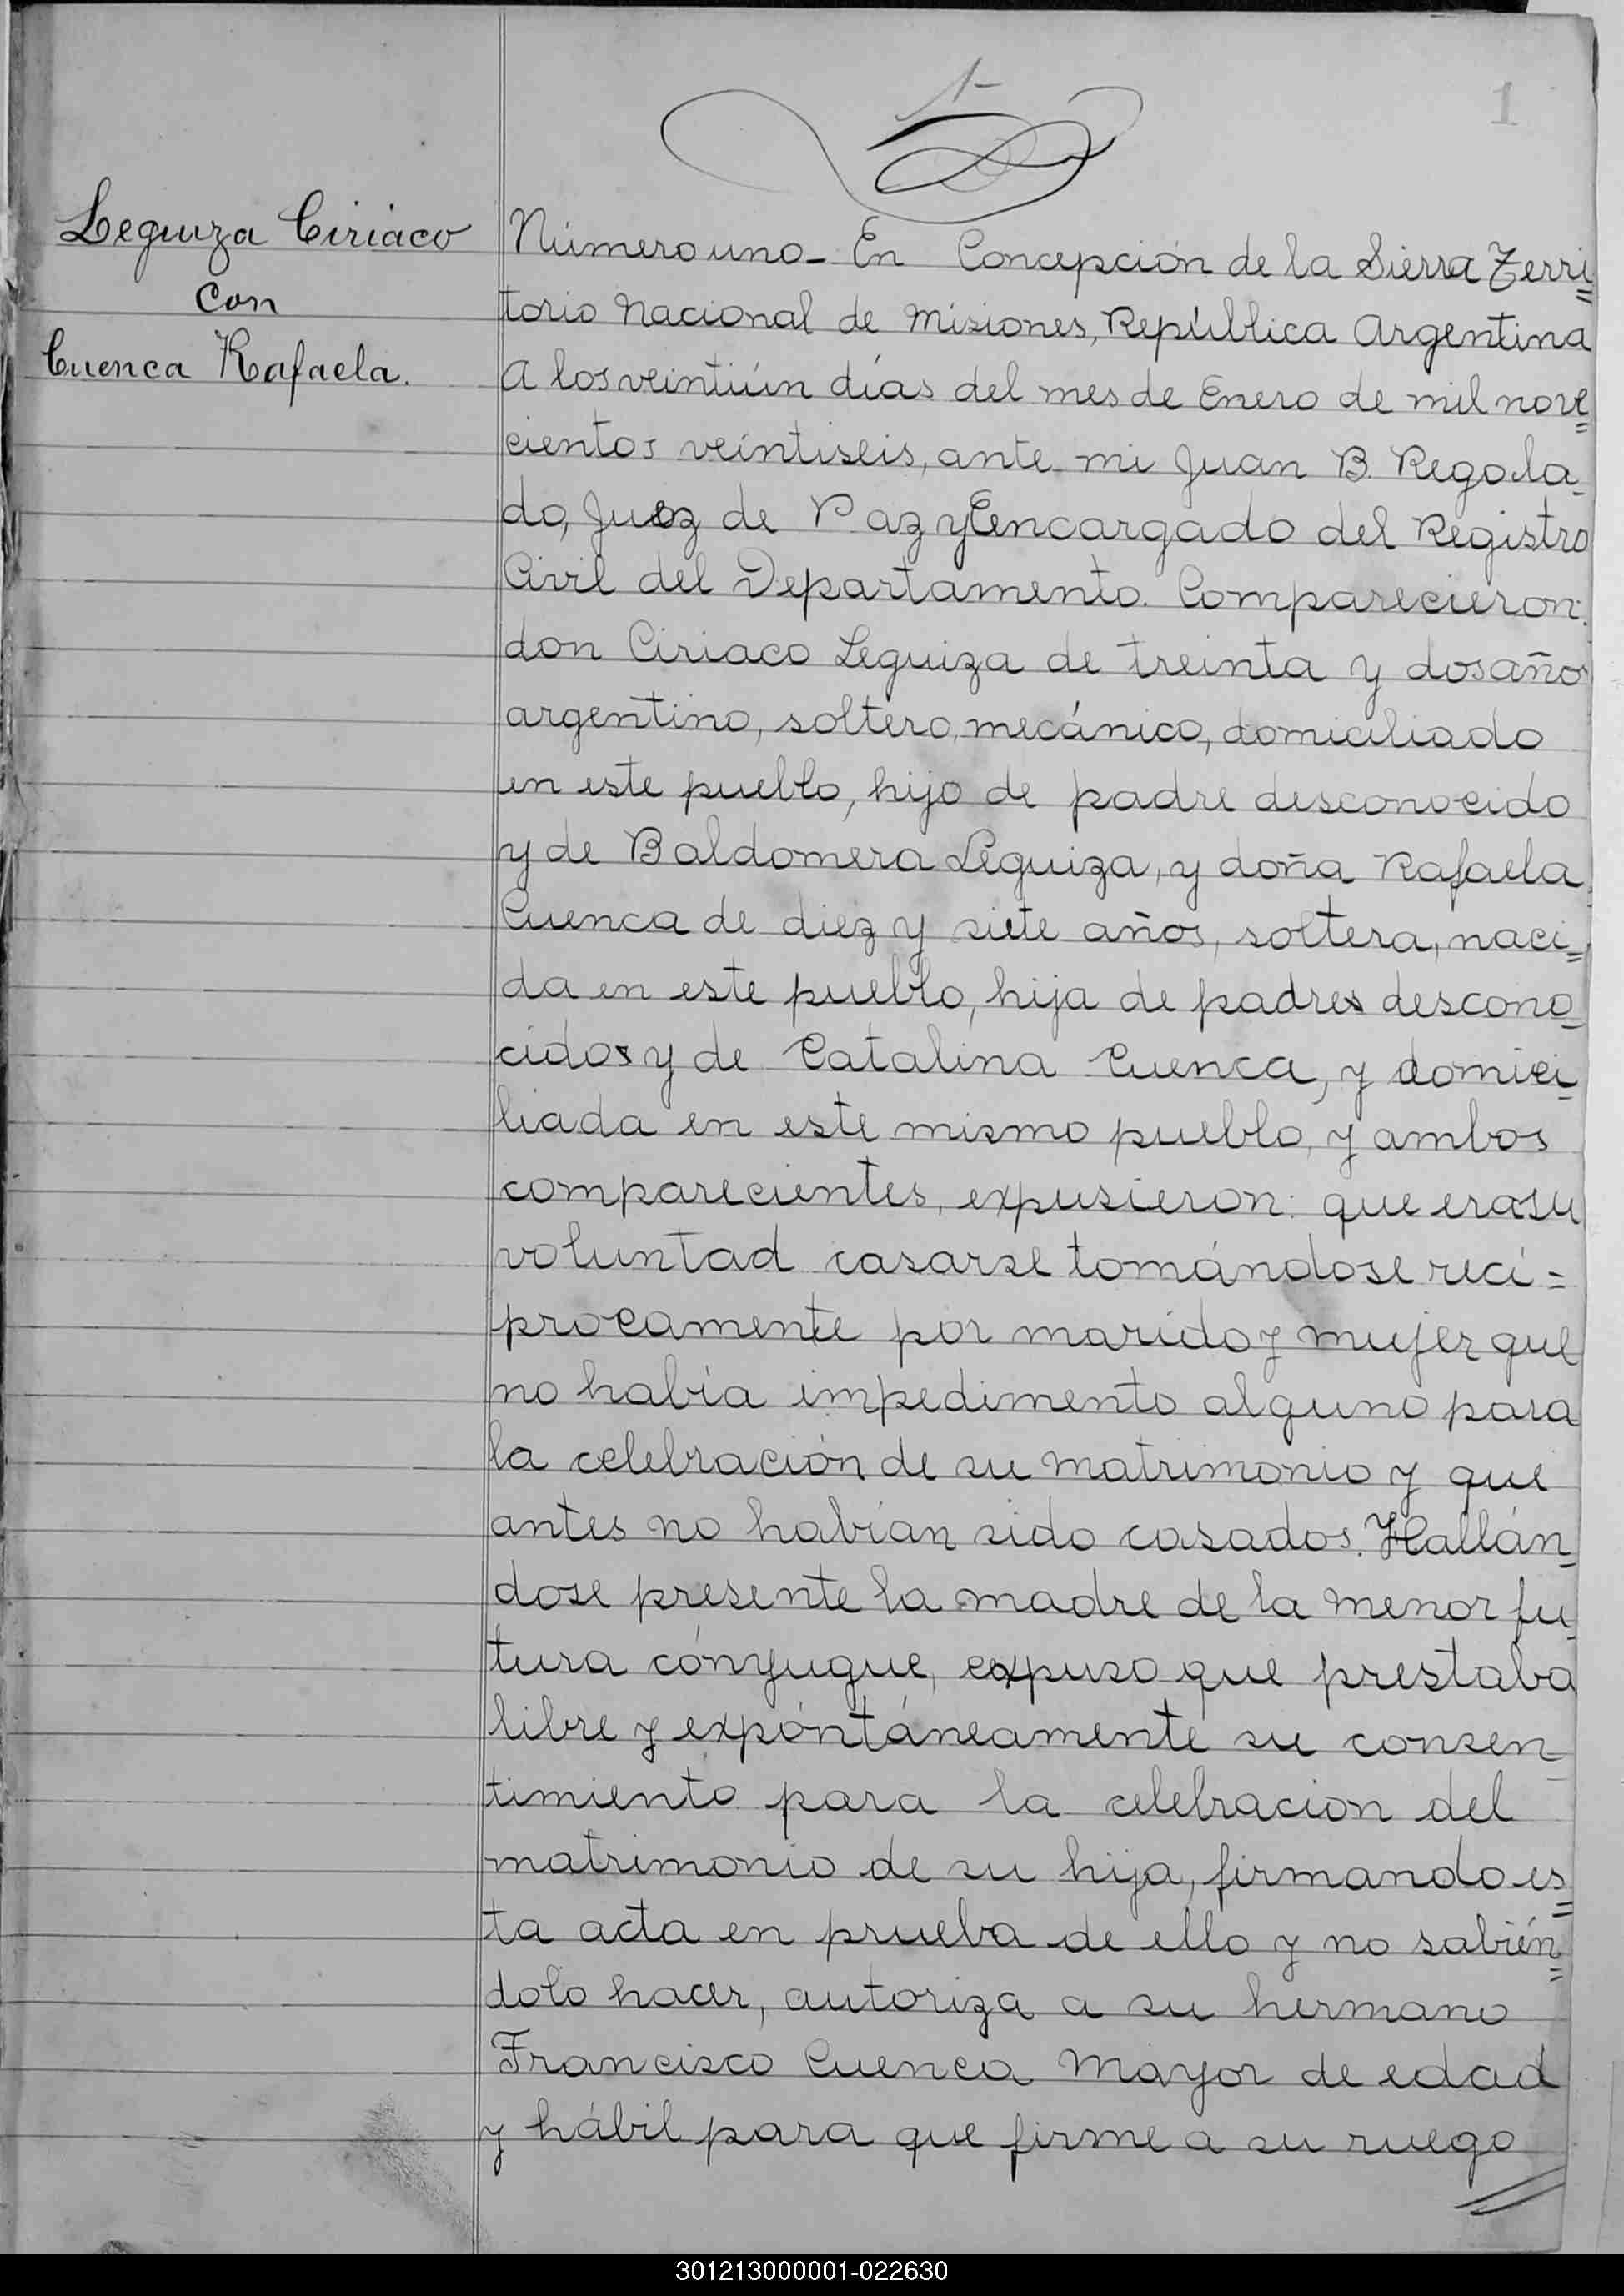 1-
1
Leguiza Ciriaco
con
Cuenca Rafaela.
Número uno- En Concepción de la Sierra Terri=
torio Nacional de Misiones, República Argentina
A los veintiún días del mes de Enero de mil nove=
cientos veintiseis, ante mi Juan B. Regola-
do, Juez de Paz y Encargado del Registro
Civil del Departamento. Comparecieron:
don Ciriaco Leguiza de treinta y dos años
argentino, soltero, mecánico, domiciliado
en este pueblo, hijo de padre desconocido
y de Baldomera Leguiza, y doña Rafaela
Cuenca de diez y siete años, soltera, naci=
da en este pueblo, hija de padres descono-
cidos y de Catalina Cuenca, y domici-
liada en este mismo pueblo, y ambos
comparecientes, expusieron: que era su
voluntad casarse tomándose recí=
procamente por marido y mujer que
no había impedimento alguno para
la celebración de su matrimonio y que
antes no habían sido casados. Hallán-
dose presente la madre de la menor fu-
tura cónyugue, expuso que prestaba
libre y expóntáneamente su consen-
timiento para la celebracion del
matrimonio de su hija, firmando es=
ta acta en prueba de ello y no sabién=
dolo hacer, autoriza a su hermano
Francisco Cuenca Mayor de edad
y hábil para que firme a su ruego
301213000001-022630